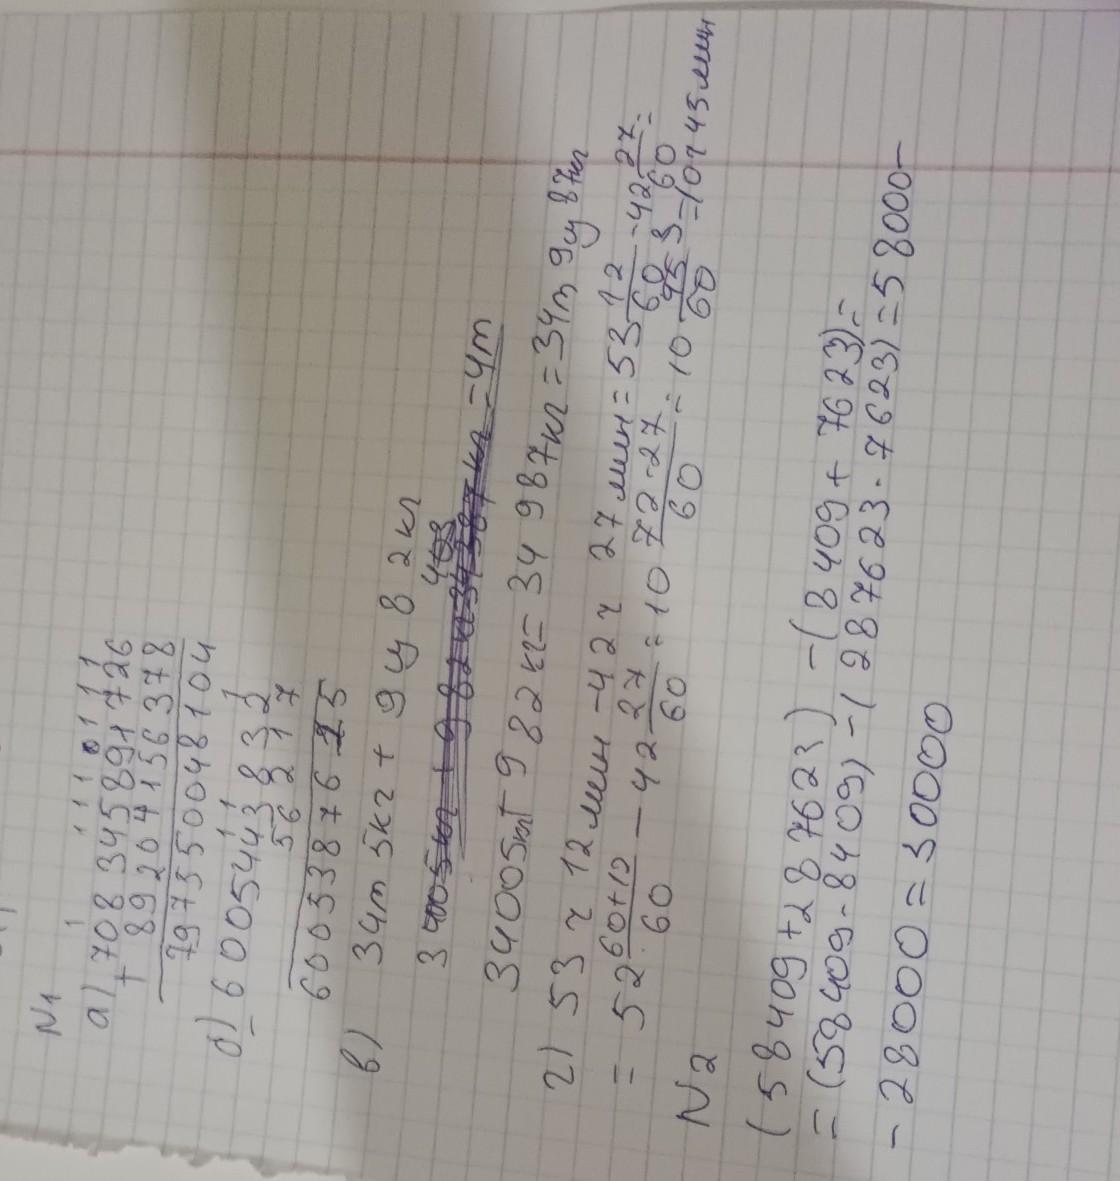 N1
а) + 708345891726
89204156378
797350048104
б) - 600544 3832
56217
600538 7615
в) 34т 5кг + 9ц 82кг
34005кг + 982кг = 34 987кг = 34т 9ц 87кг
г) 53ч 12мин - 42ч 27мин = 53 12/60 - 42 27/60 =
= 52 60+12/60 - 42 27/60 = 10 72-27/60 = 10 45/60 = 10ч 45мин
N2
(58409+287623) - (8409 + 7623) =
= (58409-8409) - (287623-7623) = 58000-
- 28000 = 30000